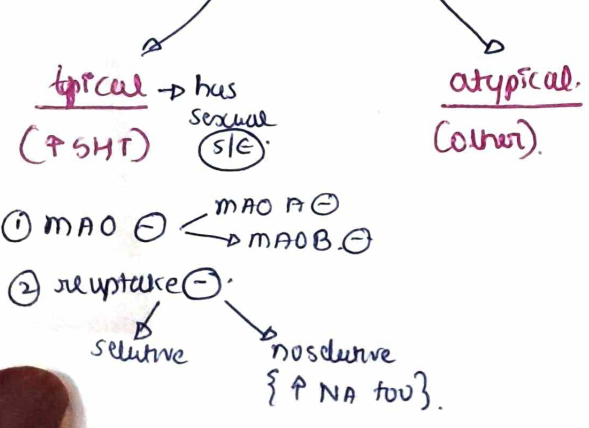 typical → has atypical.
sexual
(↑ 5HT) S/E. (other).
① MAO ⊖ MAO A ⊖
→ MAO B. ⊖
② reuptake ⊖.
selective nonselective
{↑ NA too}.